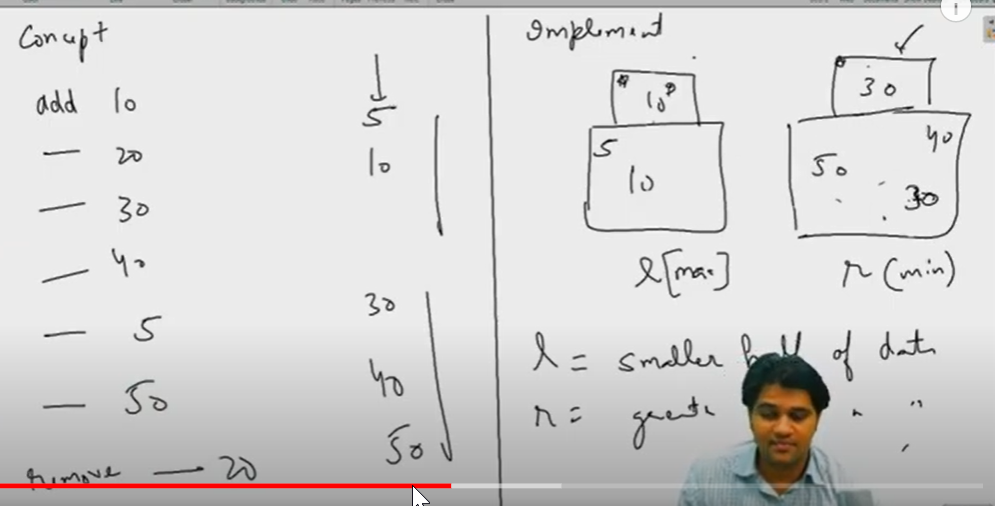 Concept
add 10
— 20
— 30
— 40
— 5
— 50
remove — 20
5
10
30
40
50
Implement
10
5
10
l [max]
30
40
50
30
r (min)
l = smaller half of data
r = " "